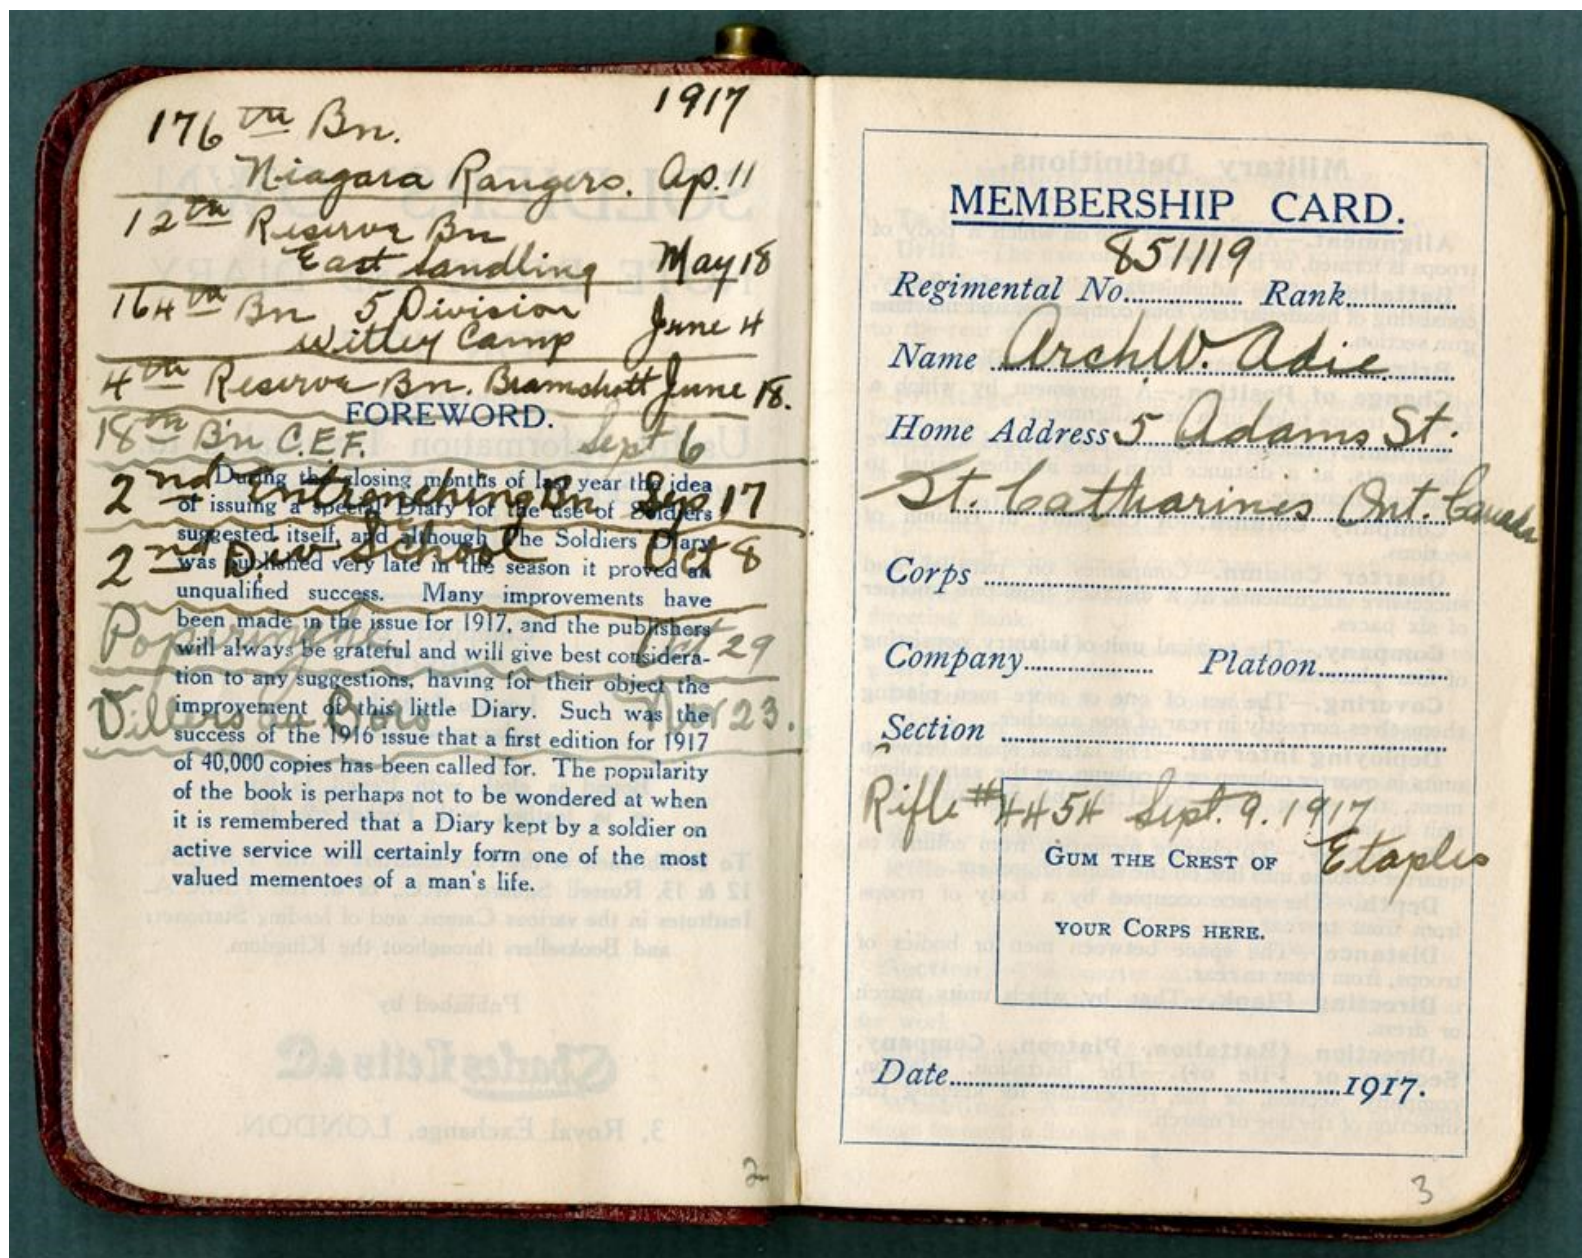 1917
176th Bn.
Niagara Rangers. Ap. 11
12th Reserve Bn
East Sandling May 18
164th Bn 5 Division
Witley Camp June 4
4th Reserve Bn. Bramshott June 18.
FOREWORD.
18th B'n C.E.F. Sept 6
2nd Entrenching Bn Sep 17
2nd Div School Oct 8
Poperinghe Oct 29
Villers au Bois Nov 23.
During the closing months of last year the idea
of issuing a special Diary for the use of Soldiers
suggested itself, and although the Soldiers Diary
was published very late in the season it proved an
unqualified success. Many improvements have
been made in the issue for 1917, and the publishers
will always be grateful and will give best considera-
tion to any suggestions, having for their object the
improvement of this little Diary. Such was the
success of the 1916 issue that a first edition for 1917
of 40,000 copies has been called for. The popularity
of the book is perhaps not to be wondered at when
it is remembered that a Diary kept by a soldier on
active service will certainly form one of the most
valued mementoes of a man's life.
2
MEMBERSHIP CARD.
851119
Regimental No. Rank
Name Arch W. Adie
Home Address 5 Adams St.
St. Catharines Ont. Canada
Corps
Company Platoon
Section
Rifle # 4454 Sept. 9. 1917
Etaples
GUM THE CREST OF
YOUR CORPS HERE.
Date 1917.
3